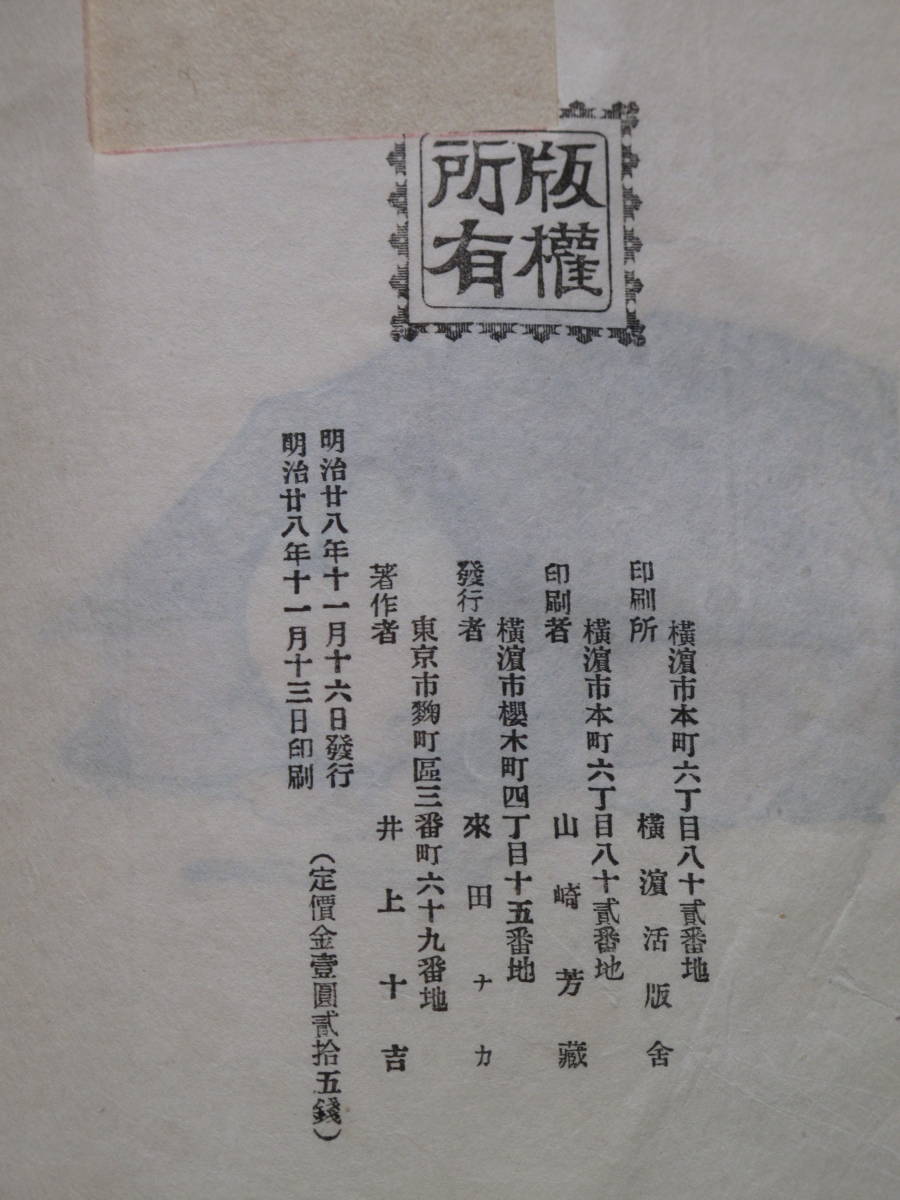 版權
所有
橫濱市本町六丁目八十貳番地
印刷所 橫濱活版舍
橫濱市本町六丁目八十貳番地
印刷者 山崎芳藏
橫濱市櫻木町四丁目十五番地
發行者 來田ナカ
東京市麴町區三番町六十九番地
著作者 井上十吉
明治廿八年十一月十六日發行
明治廿八年十一月十三日印刷
(定價金壹圓貳拾五錢)